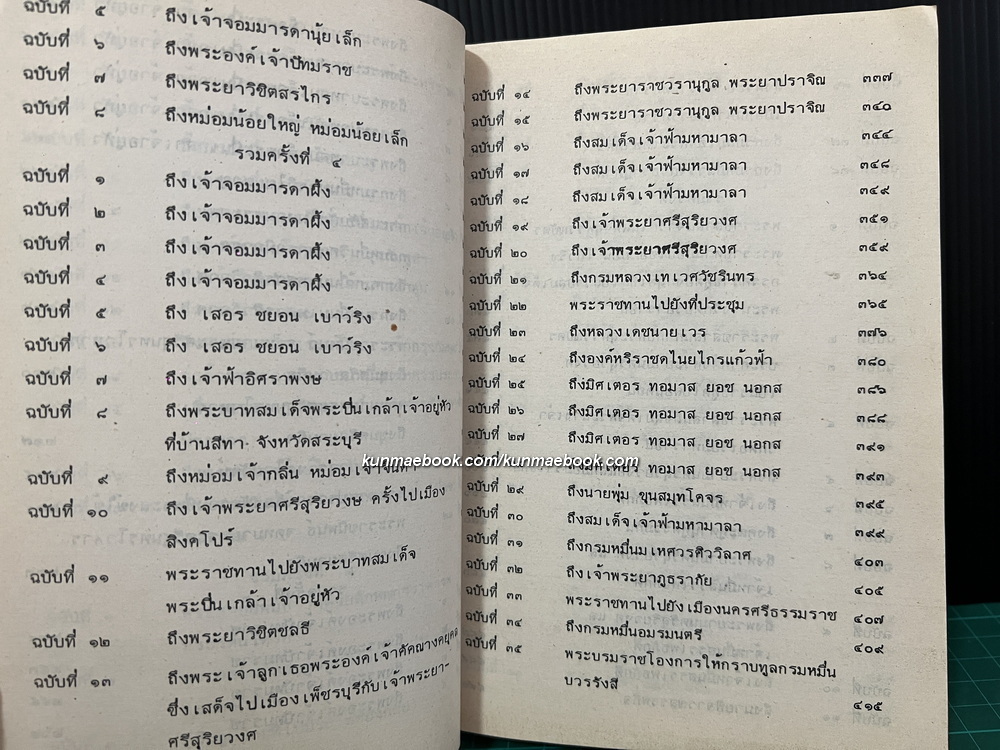 ฉบับที่ ๕ ถึง เจ้าจอมมารดานุ้ย เล็ก
ฉบับที่ ๖ ถึงพระองค์ เจ้าปัทมราช
ฉบับที่ ๗ ถึงพระยาวิชิตสรไกร
ฉบับที่ ๘ ถึงหม่อมน้อยใหญ่ หม่อมน้อย เล็ก
รวมครั้งที่ ๔
ฉบับที่ ๑ ถึง เจ้าจอมมารดาผึ้ง
ฉบับที่ ๒ ถึง เจ้าจอมมารดาผึ้ง
ฉบับที่ ๓ ถึง เจ้าจอมมารดาผึ้ง
ฉบับที่ ๔ ถึง เจ้าจอมมารดาผึ้ง
ฉบับที่ ๕ ถึง เสอร ชยอน เบาว์ริง
ฉบับที่ ๖ ถึง เสอร ชยอน เบาว์ริง
ฉบับที่ ๗ ถึง เจ้าฟ้าอิศราพงษ
ฉบับที่ ๘ ถึงพระบาทสม เด็จพระปิ่น เกล้า เจ้าอยู่หัว
ที่บ้านสีทา จังหวัดสระบุรี
ฉบับที่ ๙ ถึงหม่อม เจ้ากลิ่น หม่อม
ฉบับที่ ๑๐ ถึง เจ้าพระยาศรีสุริยวงษ ครั้งไป เมือง
สิงคโปร์
ฉบับที่ ๑๑ พระราชทานไปยังพระบาทสม เด็จ
พระปิ่น เกล้า เจ้าอยู่หัว
ฉบับที่ ๑๒ ถึงพระยาวิชิตชลธี
ฉบับที่ ๑๓ ถึงพระ เจ้าลูก เธอพระองค์ เจ้าคัคณางคยุคล
ซึ่ง เสด็จไป เมือง เพ็ชรบุรีกับ เจ้าพระยา-
ศรีสุริยวงศ
ฉบับที่ ๑๔ ถึงพระยาราชวรานุกูล พระยาปราจิณ ๓๓๗
ฉบับที่ ๑๕ ถึงพระยาราชวรานุกูล พระยาปราจิณ ๓๔๐
ฉบับที่ ๑๖ ถึงสม เด็จ เจ้าฟ้ามหามาลา ๓๔๔
ฉบับที่ ๑๗ ถึงสม เด็จ เจ้าฟ้ามหามาลา ๓๔๘
ฉบับที่ ๑๘ ถึงสม เด็จ เจ้าฟ้ามหามาลา ๓๔๙
ฉบับที่ ๑๙ ถึง เจ้าพระยาศรีสุริยวงศ ๓๕๑
ฉบับที่ ๒๐ ถึง เจ้าพระยาศรีสุริยวงศ ๓๕๙
ฉบับที่ ๒๑ ถึงกรมหลวง เท เวศวัชรินทร ๓๖๔
ฉบับที่ ๒๒ พระราชทานไปยังที่ประชุม ๓๖๕
ฉบับที่ ๒๓ ถึงหลวง เดชนาย เวร ๓๗๖
ฉบับที่ ๒๔ ถึงองค์หริราชดไนยไกรแก้วฟ้า ๓๘๐
ฉบับที่ ๒๕ ถึงมิศ เตอร ทอมาส ยอช นอกส ๓๘๖
ฉบับที่ ๒๖ ถึงมิศ เตอร ทอมาส ยอช นอกส ๓๘๘
ฉบับที่ ๒๗ ถึงมิศ เตอร ทอมาส ยอช นอกส ๓๙๑
ทอมาส ยอช นอกส ๓๙๓
kunmaebook.com/kunmaebook.com
ฉบับที่ ๒๙ ถึงนายพุ่ม ขุนสมุทโคจร ๓๙๕
ฉบับที่ ๓๐ ถึงสม เด็จ เจ้าฟ้ามหามาลา ๓๙๙
ฉบับที่ ๓๑ ถึงกรมหมื่นม เหศวรศิววิลาศ ๔๐๓
ฉบับที่ ๓๒ ถึง เจ้าพระยาภูธราภัย ๔๐๕
ฉบับที่ ๓๓ พระราชทานไปยัง เมืองนครศรีธรรมราช ๔๐๗
ฉบับที่ ๓๔ ถึงกรมหมื่นอมรมนตรี ๔๐๙
ฉบับที่ ๓๕ พระบรมราชโองการให้กราบทูลกรมหมื่น
บวรรังสี ๔๑๕